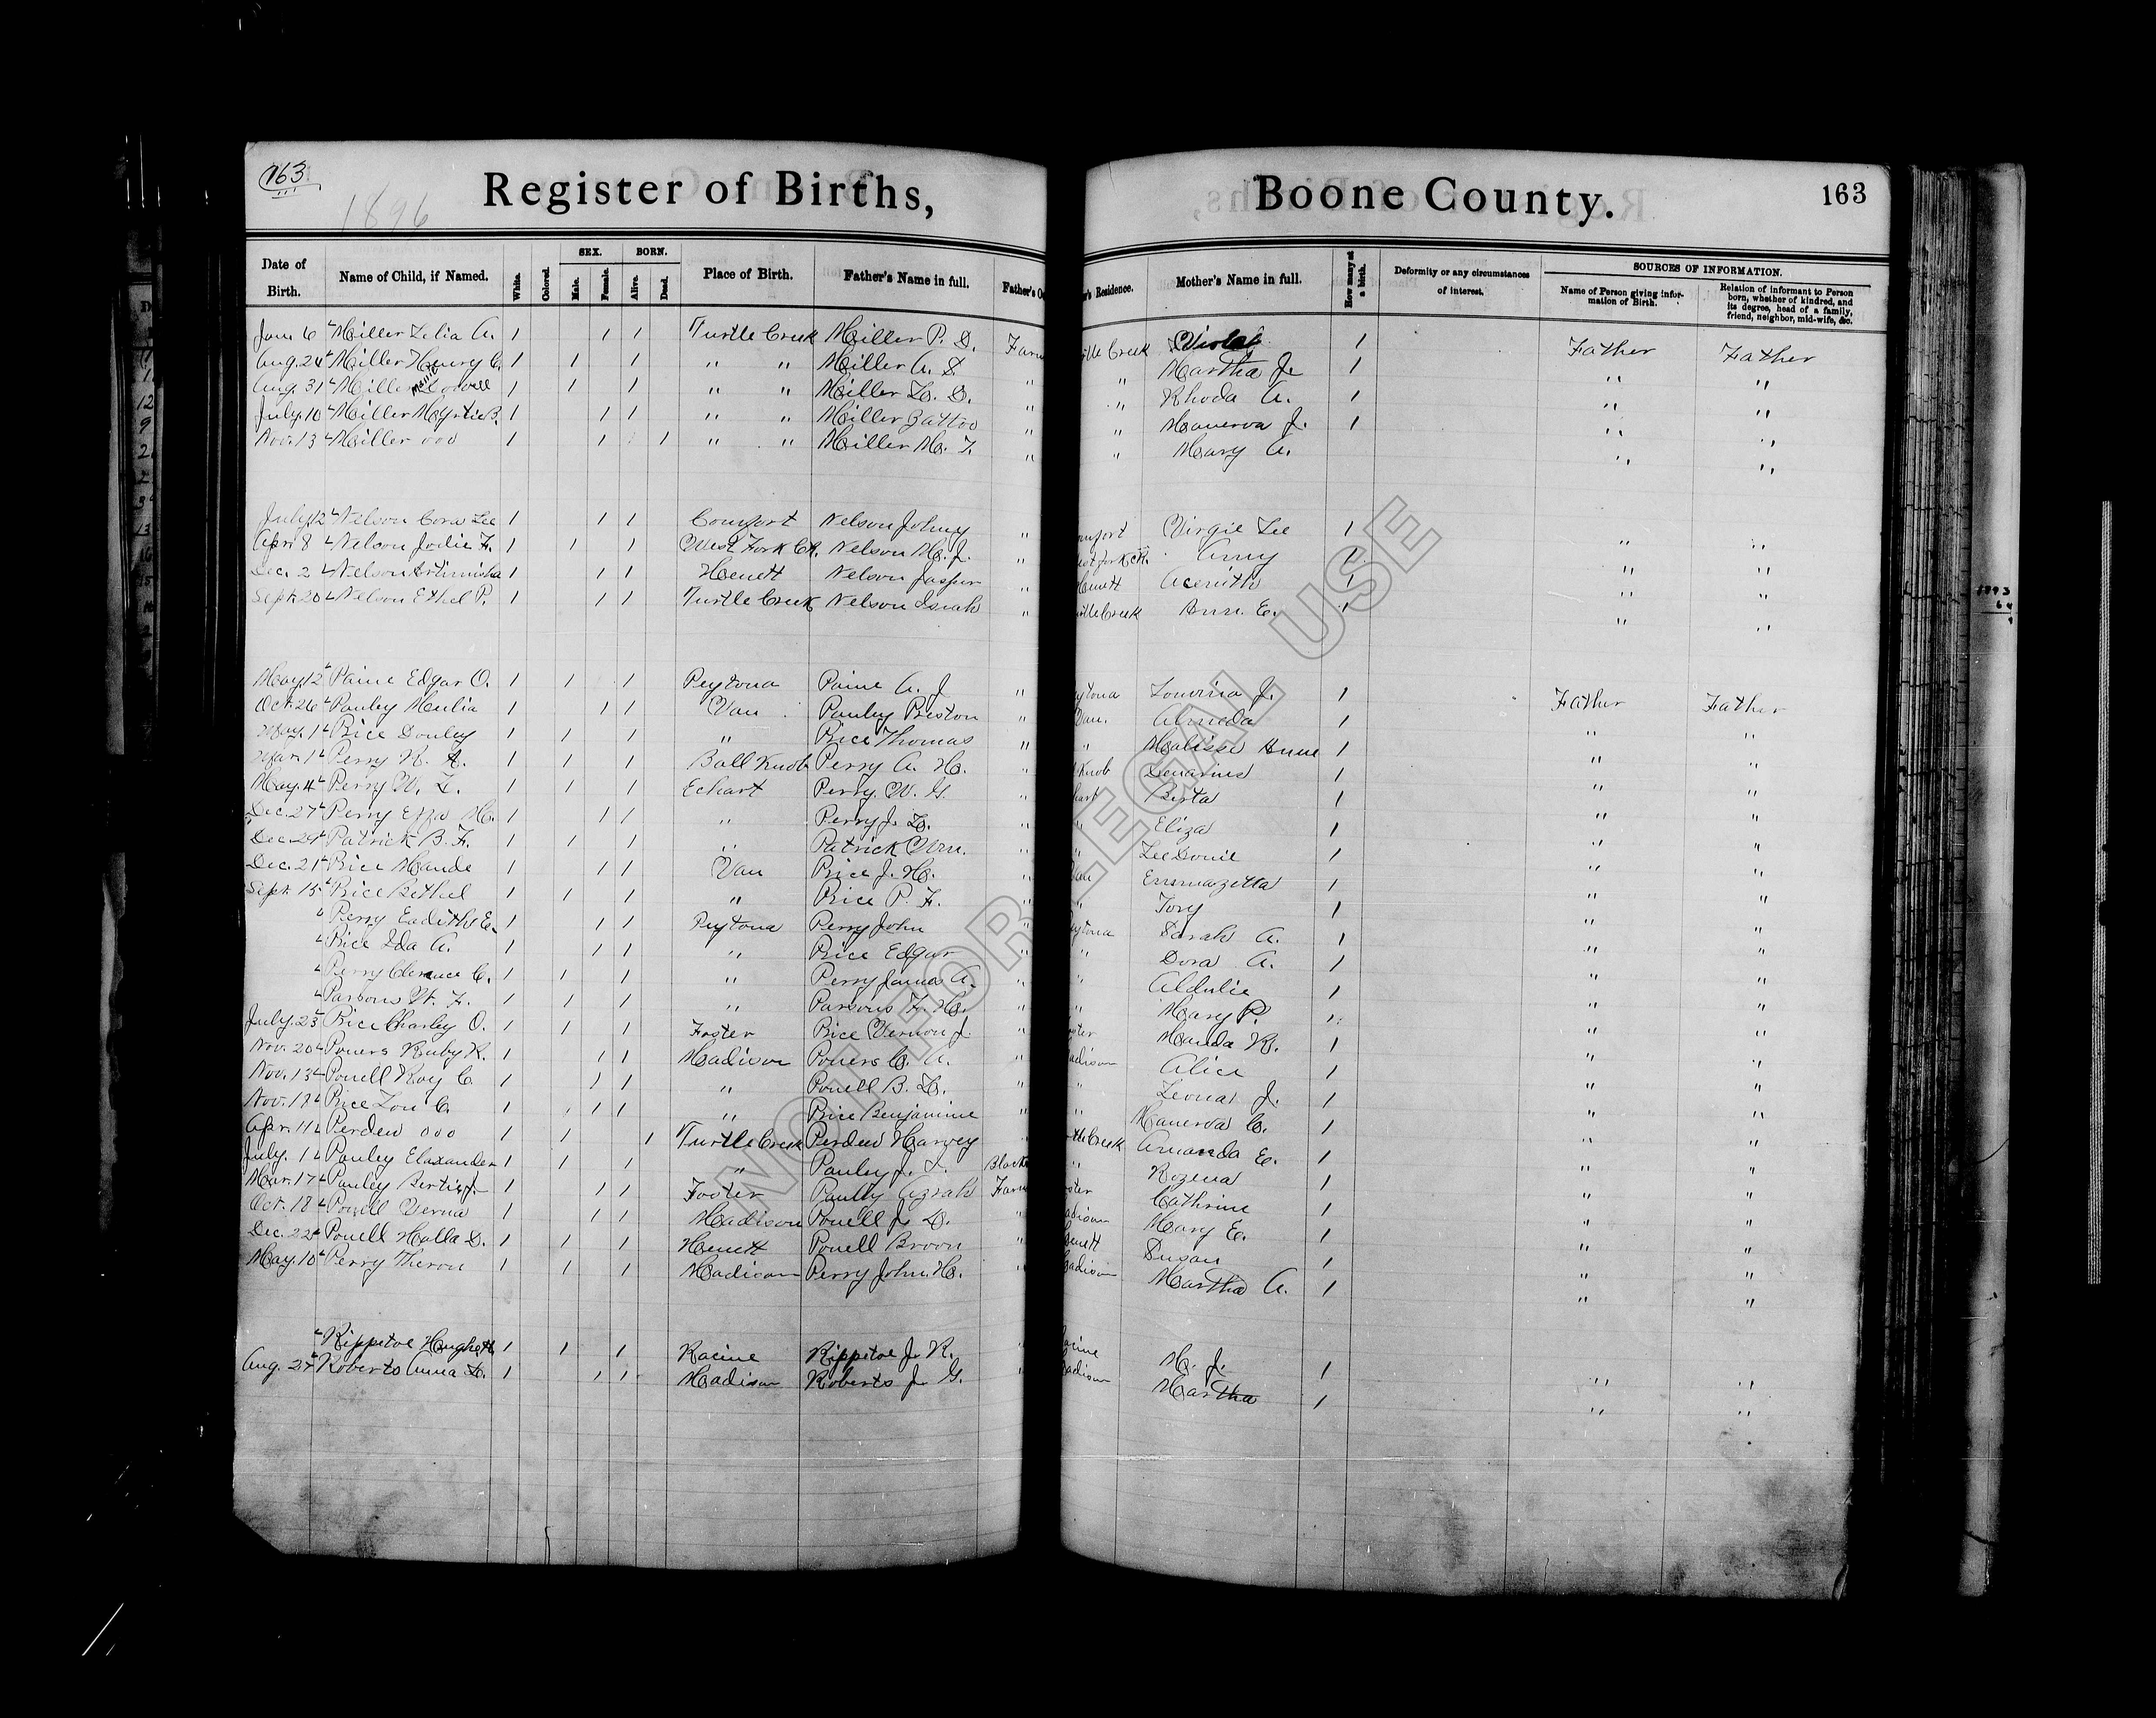 163
1896
Register of Births, Boone County. 163
Date of Birth. Name of Child, if Named. White. Colored. SEX. Male. Female. BORN. Alive. Dead. Place of Birth. Father's Name in full. Father's Oc
's Residence. Mother's Name in full. How many at a birth. Deformity or any circumstances of interest. SOURCES OF INFORMATION. Name of Person giving information of Birth. Relation of informant to Person born, whether of kindred, and its degree, head of a family, friend, neighbor, mid-wife, &c.
Jan. 6 Miller Zelia A. 1 1 1 Turtle Creek Miller P. D. Farm tle Creek Violet 1 Father Father
Aug. 24 Miller Henry C. 1 1 1 " " Miller A. S. " " Martha J. 1 " "
Aug. 31 Miller 1 1 1 " " Miller L. D. " " Rhoda A. 1 " "
July. 10 Miller Myrtie B. 1 1 1 " " Miller " " Manerva J. 1 " "
Nov. 13 Miller 000 1 1 1 " " Miller M. T. " " Mary A. " "
July 12 Nelson Cora Lee 1 1 1 Comfort Nelson Johny " mfort Virgie Lee 1 " "
Apr. 8 Nelson Jodie F. 1 1 1 West Fork Ck. Nelson M. J. " est fork ck. Amy 1 " "
Dec. 2 Nelson Artimisha 1 1 1 Hewett Nelson Jasper " Hewett 1 " "
Sept. 20 Nelson Ethel P. 1 1 1 Turtle Creek Nelson Isiah " rtle Creek Ann. E. 1 " "
May. 12 Paine Edgar O. 1 1 1 Peytona Paine A. J " ytona Louvina J. 1 Father Father
Oct. 26 Pauley Mulia 1 1 1 Van Pauley Preston " Van. Almeda 1 " "
May. 1 Price Donley 1 1 1 " Price Thomas " " Malissi Anne 1 " "
Mar. 1 Perry R. A. 1 1 1 Ball Knob Perry A. H. " Knob 1 " "
May. 4 Perry W. L. 1 1 1 Echart Perry. W. G. " hart Birta 1 " "
Dec. 27 Perry Effa M. 1 1 1 " Perry J. L. " " Eliza 1 " "
Dec. 24 Patrick B. F. 1 1 1 " Patrick Wm. " " Lee Donie 1 " "
Dec. 21 Price Maude 1 1 1 Van Price J. H. " Van Emmazetta 1 " "
Sept. 15 Price Bethel 1 1 1 " Price P. F. " " Tory 1 " "
Perry Eadith E. 1 1 1 Peytona Perry John " eytona Sarah A. 1 " "
Price Ida A. 1 1 1 " Price Edgar " " Dora A. 1 " "
Perry Clerance C. 1 1 1 " Perry James A. " " Aldulie 1 " "
Parsons W. F. 1 1 1 " Parsons F. M. " " Mary P. " " "
July. 23 Price Charley O. 1 1 1 Foster Price Vernon J. " ster Manda K. 1 " "
Nov. 20 Powers Ruby K. 1 1 1 Madison Powers C. A. " adison Alice 1 " "
Nov. 13 Powell Roy C. 1 1 1 " Powell B. L. " " Leona J. 1 " "
Nov. 17 Price Lou C. 1 1 1 " Price Benjamine " " Manerva C. 1 " "
Apr. 11 Perdew 000 1 1 1 Turtle Creek Perdew Harvey " rtle Creek Amanda E. 1 " "
July. 1 Pauley Elaxander 1 1 1 " Pauley J. S. Black " Rozena 1 " "
Mar. 17 Pauley Bertie J 1 1 1 Foster Paully Azrah Farm ster Cathrine 1 " "
Oct. 18 Powell Verna 1 1 1 Madison Powell J. D. " adison Mary E. 1 " "
Dec. 22 Powell Halla D. 1 1 1 Hewett Powell Broon " ewett Susan 1 " "
May. 10 Perry Theron 1 1 1 Madison Perry John. H. " adison Martha A. 1 " "
Rippetoe Hugh H. 1 1 1 Racine Rippetoe J. R. " acine M. J. 1 " "
Aug. 27 Roberts Anna L. 1 1 1 Madison Roberts J. G. " adison Martha 1 " "
NOT FOR LEGAL USE